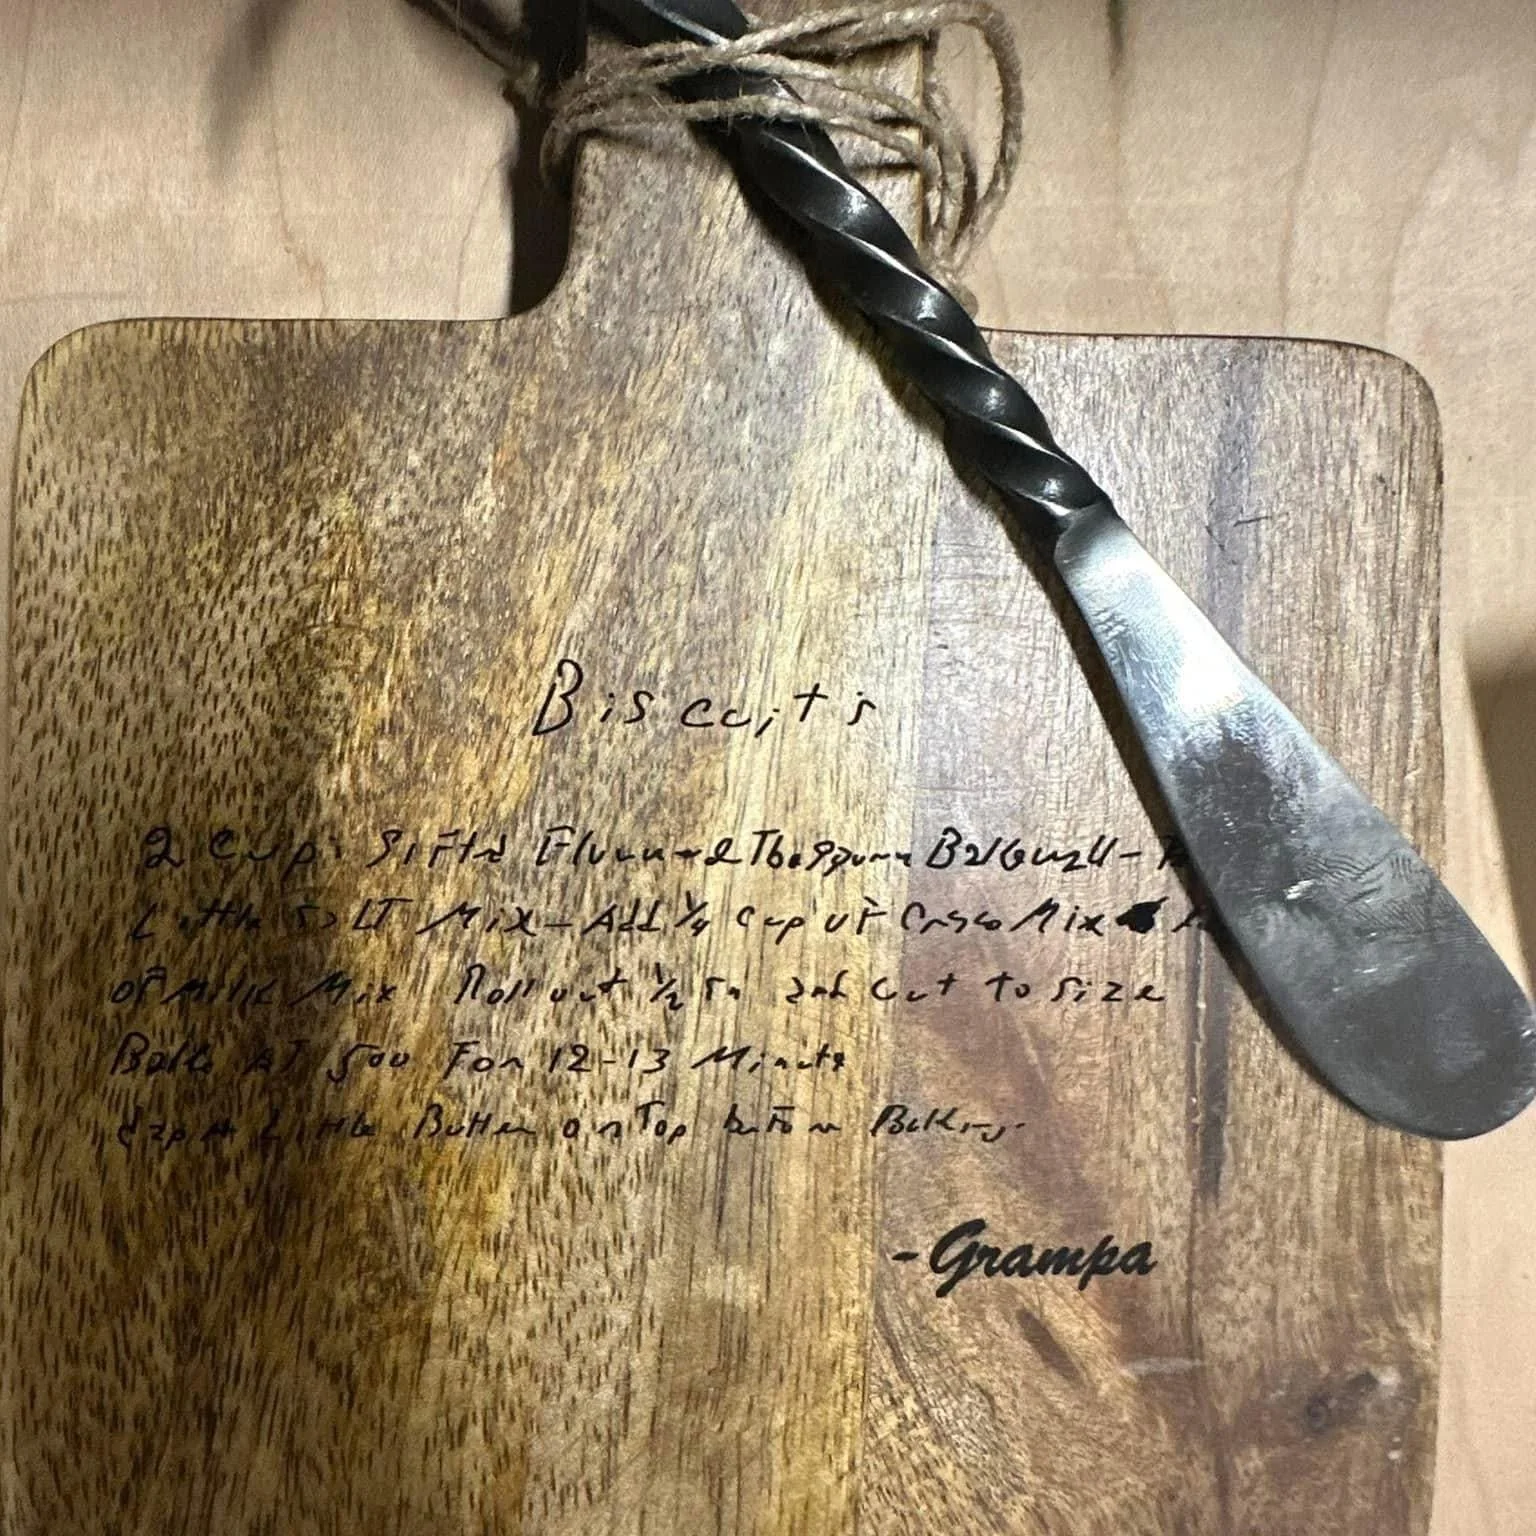 Biscuits
2 Cups Sifted Flour - 2 Tbsspoon
Little Salt Mix - Add 1/4 Cup of Crisco Mix
of Milk Mix Roll out 1/2 in and Cut to size
Bake AT 500 For 12-13 Minute
A Little Butter on Top before Baking.
-Grampa